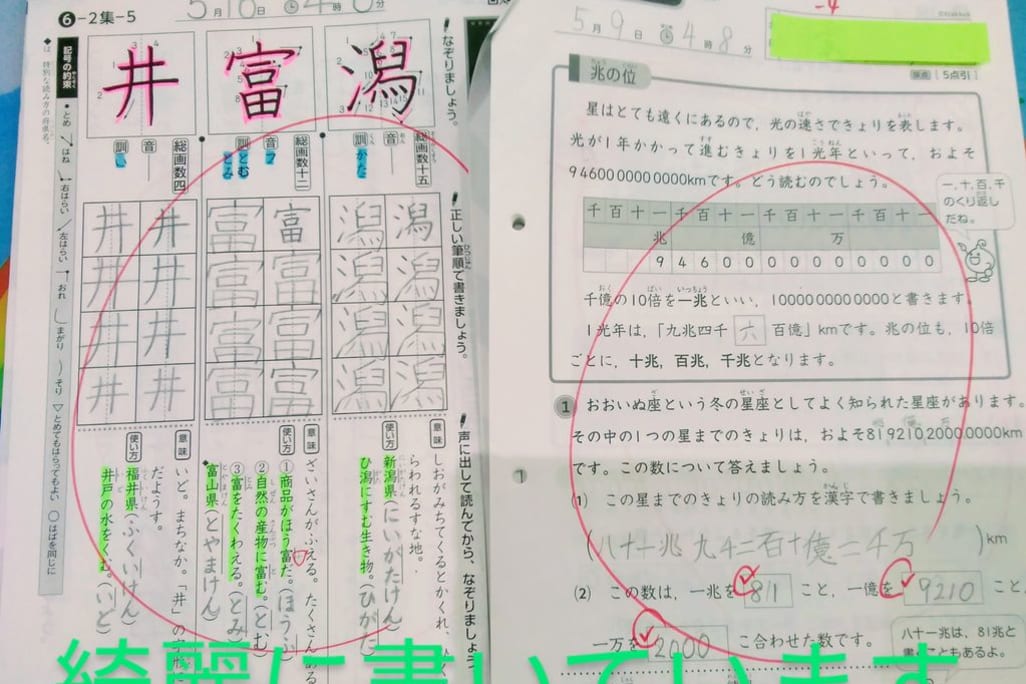 ❻-2集-5
5月10日 4時0分
なぞりましょう。
潟
富
井
総画数十五
音 ―
訓 かた
総画数十二
音 フ
訓 とむ とみ
総画数四
音 ―
訓 い
正しい筆順で書きましょう。
潟 潟
潟 潟
潟 潟
潟 潟
富 富
富 富
富 富
富 富
井 井
井 井
井 井
井 井
声に出して読んでから、なぞりましょう
意味
しおがみちてくるとかくれ、
らわれるすな地。
使い方
新潟県(にいがたけん)
ひ潟にすむ生き物。(ひがた)
意味
ざいさんがふえる。たくさんある
使い方
①商品がほう富だ。(ほうふ)
②自然の産物に富む。(とむ)
③富をたくわえる。(とみ)
富山県(とやまけん)
意味
いど。まちなか。「井」の字
だようす。
使い方
福井県(ふくいけん)
井戸の水をくむ。(いど)
記号の約束
とめ はね 右はらい 左はらい おれ まがり そり ▽とめてもはらってもよい ○はばを同じに
◆は、特別な読み方の府県名。
5月9日 4時8分
-4
兆の位
[5点引]
星はとても遠くにあるので,光の速さできょりを表します。
光が1年かかって進むきょりを1光年といって,およそ
9460000000000kmです。どう読むのでしょう。
一,十,百,千
のくり返し
だね。
千 百 十 一 千 百 十 一 千 百 十 一 千 百 十 一
兆 億 万
9 4 6 0 0 0 0 0 0 0 0 0 0
千億の10倍を一兆といい,1000000000000と書きます。
1光年は,「九兆四千 六 百億」kmです。兆の位も,10倍
ごとに,十兆,百兆,千兆となります。
1 おおいぬ座という冬の星座としてよく知られた星座があります。
その中の1つの星までのきょりは,およそ81921020000000km
です。この数について答えましょう。
(1) この星までのきょりの読み方を漢字で書きましょう。
(八十一兆九千二百十億二千万)km
(2) この数は,一兆を 81 こと,一億を 9210 こと,
一万を 2000 こ合わせた数です。
八十一兆は,81兆と
書くこともあるよ。
綺麗に書いています